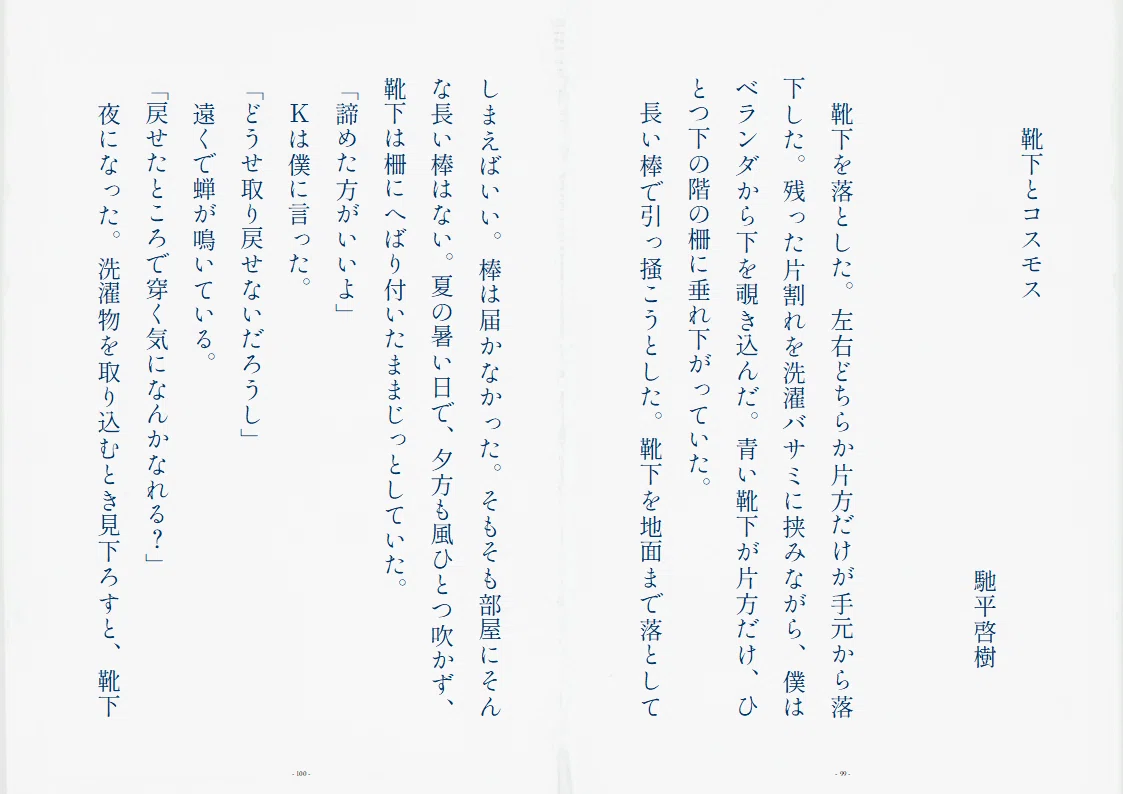 靴下とコスモス
馳平啓樹
靴下を落とした。左右どちらか片方だけが手元から落
下した。残った片割れを洗濯バサミに挟みながら、僕は
ベランダから下を覗き込んだ。青い靴下が片方だけ、ひ
とつ下の階の柵に垂れ下がっていた。
長い棒で引っ掻こうとした。靴下を地面まで落として
- 99 -
しまえばいい。棒は届かなかった。そもそも部屋にそん
な長い棒はない。夏の暑い日で、夕方も風ひとつ吹かず、
靴下は柵にへばり付いたままじっとしていた。
「諦めた方がいいよ」
Kは僕に言った。
「どうせ取り戻せないだろうし」
遠くで蝉が鳴いている。
「戻せたところで穿く気になんかなれる?」
夜になった。洗濯物を取り込むとき見下ろすと、靴下
- 100 -